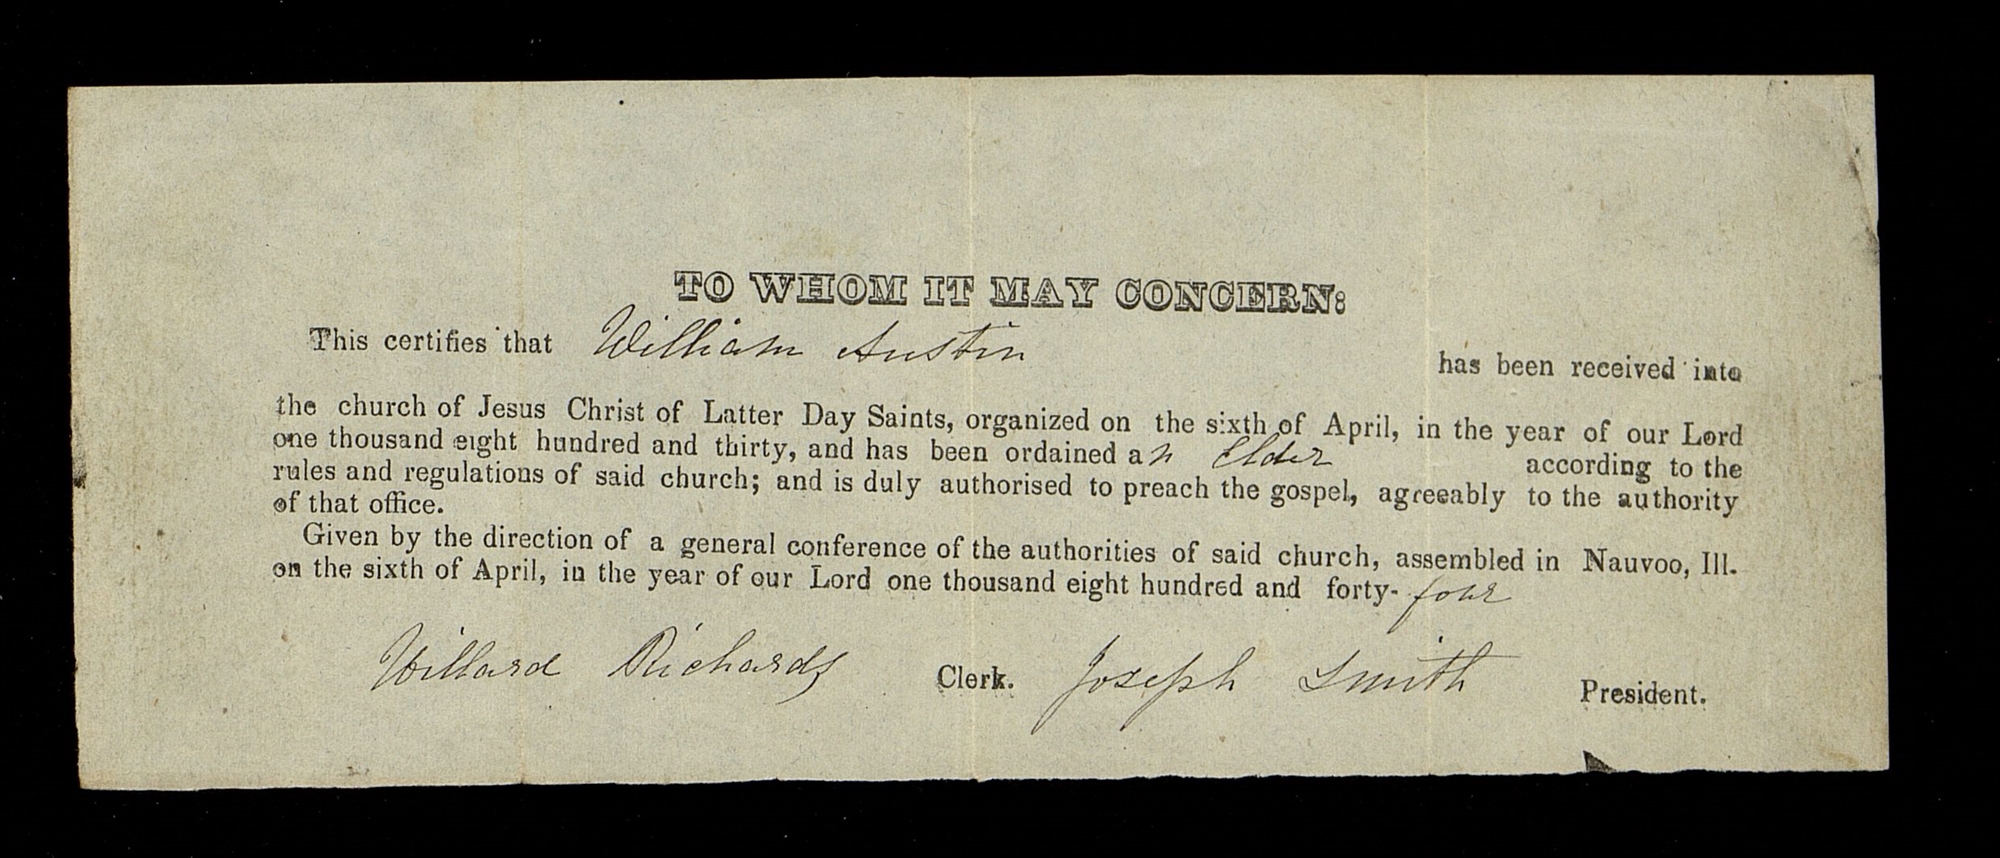 TO WHOM IT MAY CONCERN:
This certifies that William Austin has been received into
the church of Jesus Christ of Latter Day Saints, organized on the sixth of April, in the year of our Lord
one thousand eight hundred and thirty, and has been ordained an Elder according to the
rules and regulations of said church; and is duly authorised to preach the gospel, agreeably to the authority
of that office.
Given by the direction of a general conference of the authorities of said church, assembled in Nauvoo, Ill.
on the sixth of April, in the year of our Lord one thousand eight hundred and forty-four
Willard Richards Clerk. Joseph Smith President.